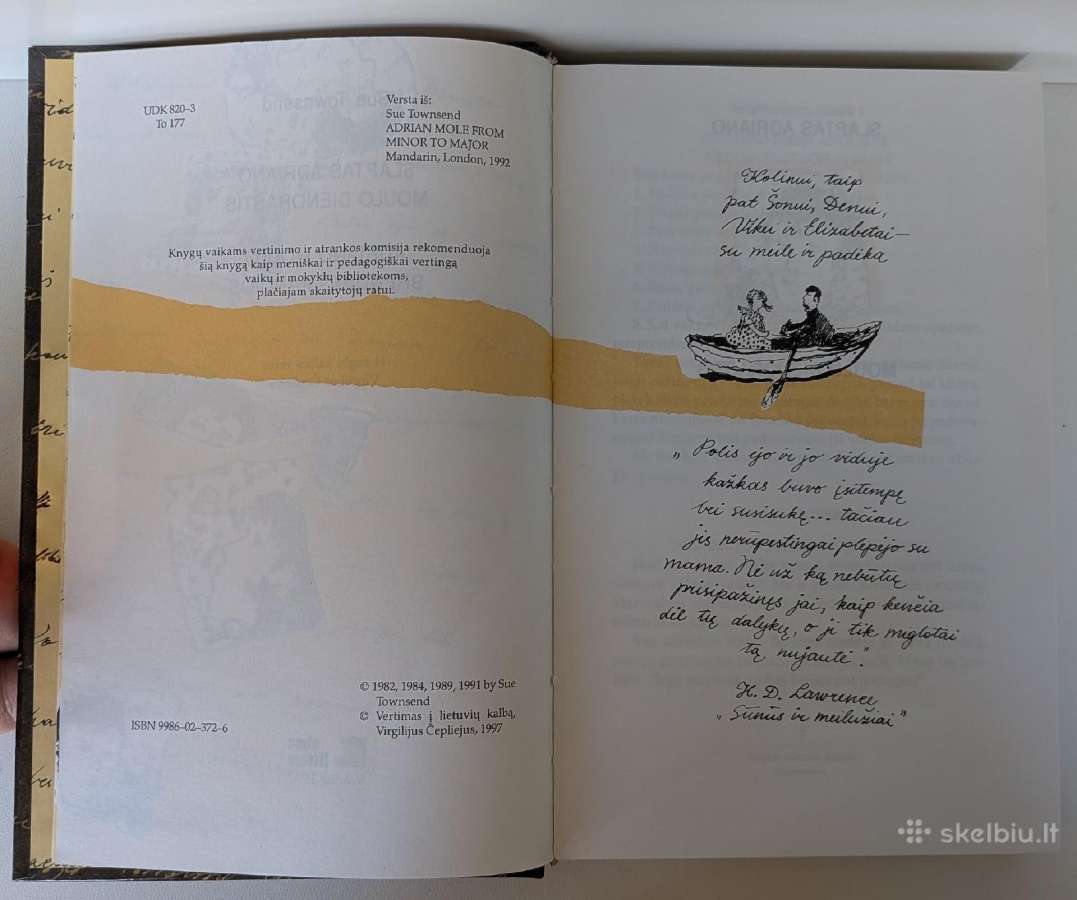 UDK 820–3
To 177
Versta iš:
Sue Townsend
ADRIAN MOLE FROM
MINOR TO MAJOR
Mandarin, London, 1992
Knygų vaikams vertinimo ir atrankos komisija rekomenduoja
šią knygą kaip meniškai ir pedagogiškai vertingą
vaikų ir mokyklų bibliotekoms,
plačiajam skaitytojų ratui.
© 1982, 1984, 1989, 1991 by Sue
Townsend
© Vertimas į lietuvių kalbą,
Virgilijus Čepliejus, 1997
ISBN 9986–02–372–6
Kolinui, taip
pat Šonui, Denui,
Vikei ir Elizabetai –
su meile ir padėka
„Polis ėjo ir jo viduje
kažkas buvo įsitempę
bei susisukę... tačiau
jis nerūpestingai plepėjo su
mama. Nė už ką nebūtų
prisipažinęs jai, kaip kenčia
dėl tų dalykų, o ji tik miglotai
tą nujautė”.
H. D. Lawrence
„Sūnūs ir meilužiai”
skelbiu.lt